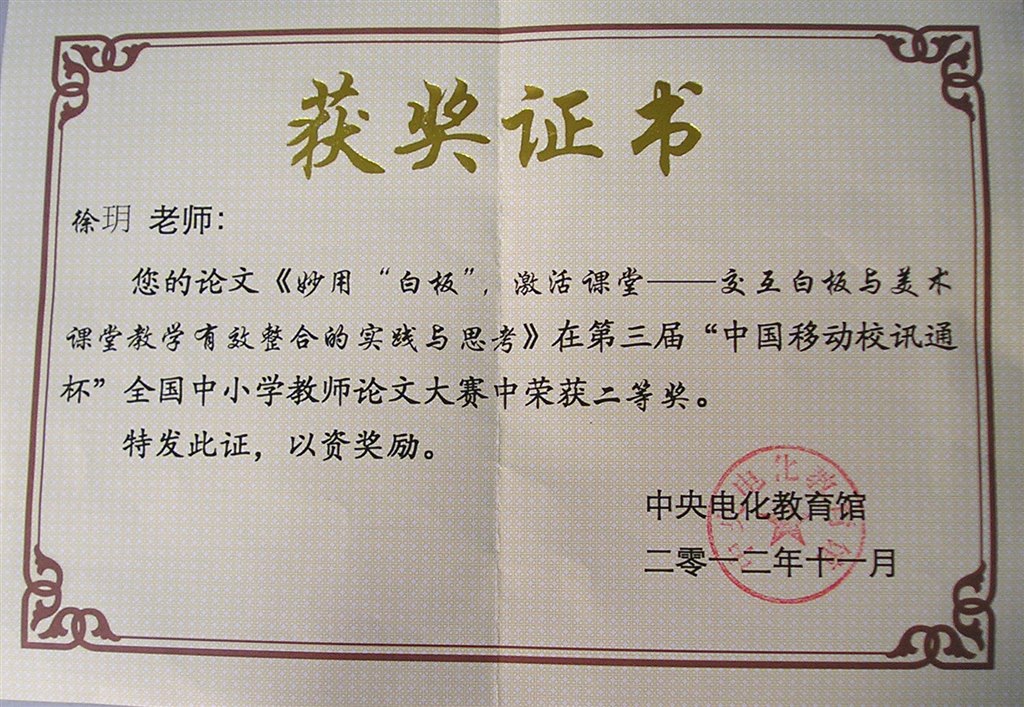 获奖证书
徐玥 老师：
您的论文《妙用“白板”，激活课堂——交互白板与美术
课堂教学有效整合的实践与思考》在第三届“中国移动校讯通
杯”全国中小学教师论文大赛中荣获二等奖。
特发此证，以资奖励。
中央电化教育馆
二零一二年十一月
中央电化教育馆